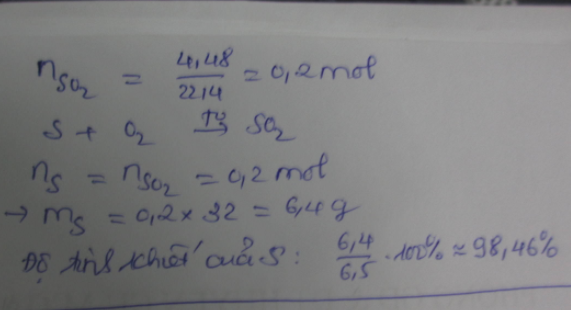 nSO₂ = 4,48/22,4 = 0,2 mol
S + O₂ →(t°) SO₂
nS = nSO₂ = 0,2 mol
→ mS = 0,2 × 32 = 6,4 g
Độ tinh khiết của S: 6,4/6,5 . 100% ≈ 98,46%